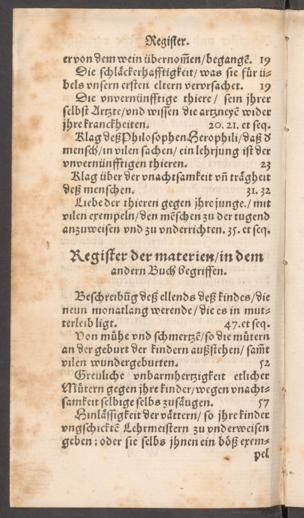 Register.
er von dem wein übernom̃en/ begangẽ. 19
Die schläckerhafftigkeit/ was sie für ü-
bels vnsern ersten eltern verorsachet. 19
Die vnvernünfftige thiere/ sein jhrer
selbst Artzte/ vnd wissen die artzneyẽ wider
jhre kranckheiten. 20. 21. et seq.
Klag deß Philosophen Herophili/ daß d
mensch/ in vilen sachen/ ein lehrjung ist der
vnvernünfftigen thieren. 23
Klag über der vnachtsamkeit vñ trägheit
deß menschen. 31. 32
Liebe der thieren gegen jhre junge./ mit
vilen exempeln/ den mẽschen zu der tugend
anzuweisen vnd zu vnderrichten. 35. et seq.
Register der materien/ in dem
andern Buch begriffen.
Beschreibũg deß ellends deß kindes/ die
neun monatlang werende/ die es in mut-
terleib ligt. 47. et seq.
Von mühe vnd schmertzẽ/ so die mütern
an der geburt der kindern außstehen/ sam̃t
vilen wundergeburten. 52
Greuliche vnbarmhertzigkeit etlicher
Mütern gegen jhre kinder/ wegen vnacht-
samkeit selbige selbs zusäugen. 57
Hinlässigkeit der vättern/ so jhre kinder
vngschicktẽ Lehrmeistern zu vnderweisen
geben: oder sie selbs jhnen ein böß exem-
pel